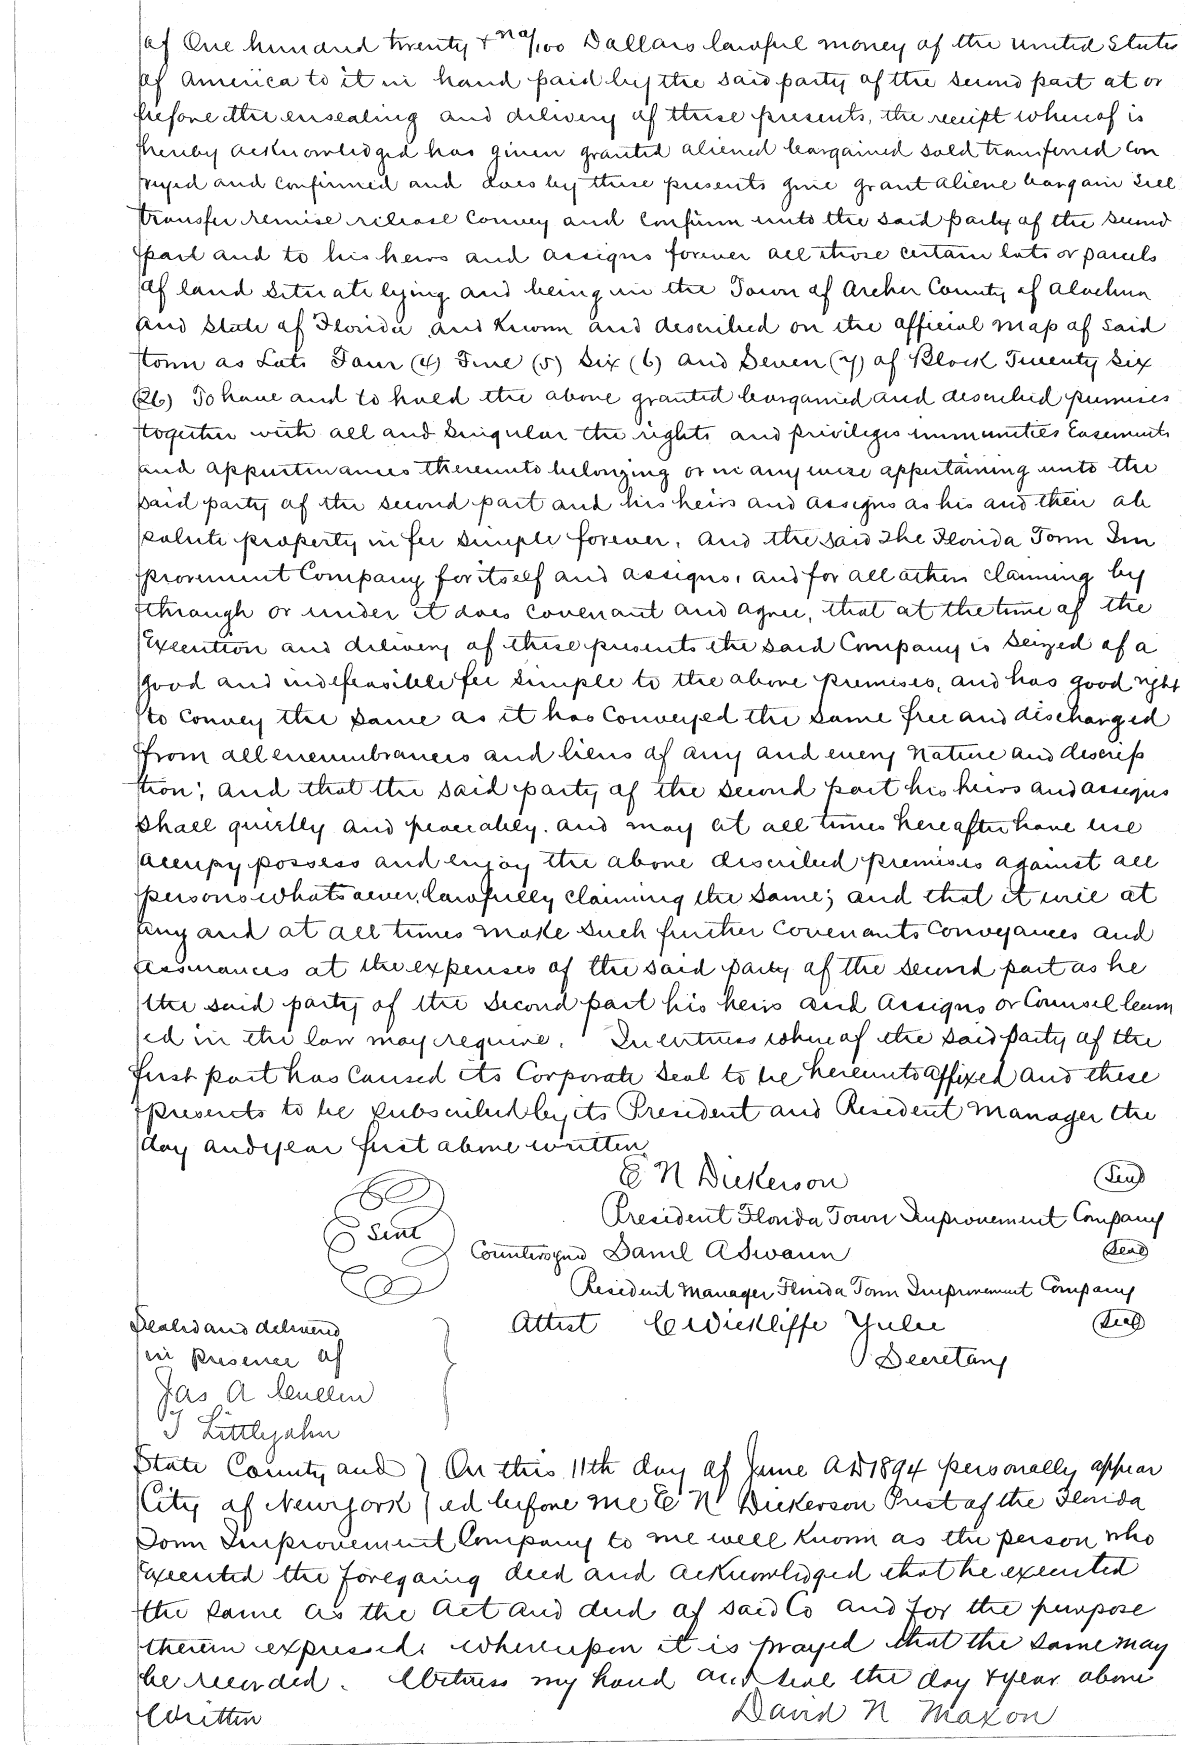 of One hundred twenty & no/100 Dollars lawful money of the United States
of America to it in hand paid by the said party of the second part at or
before the ensealing and delivery of these presents, the receipt whereof is
hereby acknowledged has given granted aliened bargained sold transferred con
veyed and confirmed and does by these presents give grant aliene bargain sell
transfer remise release convey and confirm unto the said party of the second
part and to his heirs and assigns forever all those certain lots or parcels
of land situate lying and being in the Town of Archer County of Alachua
and State of Florida and known and described on the official map of said
town as Lots Four (4) Five (5) Six (6) and Seven (7) of Block Twenty Six
(26) To have and to hold the above granted bargained and described premises
together with all and singular the rights and privileges immunities Easements
and appurtenances thereunto belonging or in any wise appertaining unto the
said party of the second part and his heirs and assigns as his and their ab
solute property in fee simple forever. And the said The Florida Town Im
provement Company for itself and assigns, and for all others claiming by
through or under it does covenant and agree, that at the time of the
Execution and delivery of these presents the said Company is seized of a
good and indefeasible fee simple to the above premises, and has good right
to convey the same as it has conveyed the same free and discharged
from all encumbrances and liens of any and every nature and descrip
tion; and that the said party of the second part his heirs and assigns
shall quietly and peaceably and may at all times hereafter have use
occupy possess and enjoy the above described premises against all
persons whatsoever, lawfully claiming the same; and that it will at
any and at all times make such further covenants conveyances and
assurances at the expenses of the said party of the second part as he
the said party of the second part his heirs and assigns or Counsel learn
ed in the law may require. In witness whereof the said party of the
first part has caused its Corporate Seal to be hereunto affixed and these
presents to be subscribed by its President and Resident Manager the
day and year first above written
E N Dickerson (Seal)
President Florida Town Improvement Company
Seal
Countersigned Danl A Swann (Seal)
Resident Manager Florida Town Improvement Company
Sealed and delivered Attest C Wickliffe Yulee (Seal)
in presence of Secretary
Jas A Cullen
T Littlejohn
State County and } On this 11th day of June AD 1894 personally appear
City of New York } ed before me E N Dickerson Prest of the Florida
Town Improvement Company to me well known as the person who
Executed the foregoing deed and acknowledged that he executed
the same as the act and deed of said Co and for the purpose
therein expressed, whereupon it is prayed that the same may
be recorded. Witness my hand and seal the day & year above
written David N Maxon